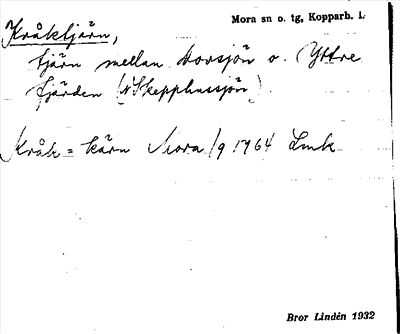 Kråktjärn,
Mora sn o. tg, Kopparb. l.
tjärn mellan Borsjön o. Yttre
fjärden (i Skepphussjön).
Kråk = kärn Mora /9 1964 Lmk
Bror Lindén 1932